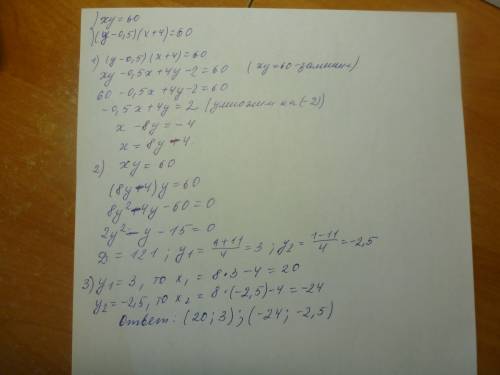 ) xy = 60
) (y-0,5)(x+4) = 60
1) (y-0,5)(x+4) = 60
xy - 0,5x + 4y - 2 = 60 (xy = 60 - заменим)
60 - 0,5x + 4y - 2 = 60
-0,5x + 4y = 2 (умножим на (-2))
x - 8y = -4
x = 8y - 4
2) xy = 60
(8y - 4) y = 60
8y² - 4y - 60 = 0
2y² - y - 15 = 0
D = 121 ; y₁ = (1+11)/4 = 3 ; y₂ = (1-11)/4 = -2,5
3) y₁ = 3, то x₁ = 8*3 - 4 = 20
y₂ = -2,5, то x₂ = 8*(-2,5) - 4 = -24
Ответ: (20; 3); (-24; -2,5)